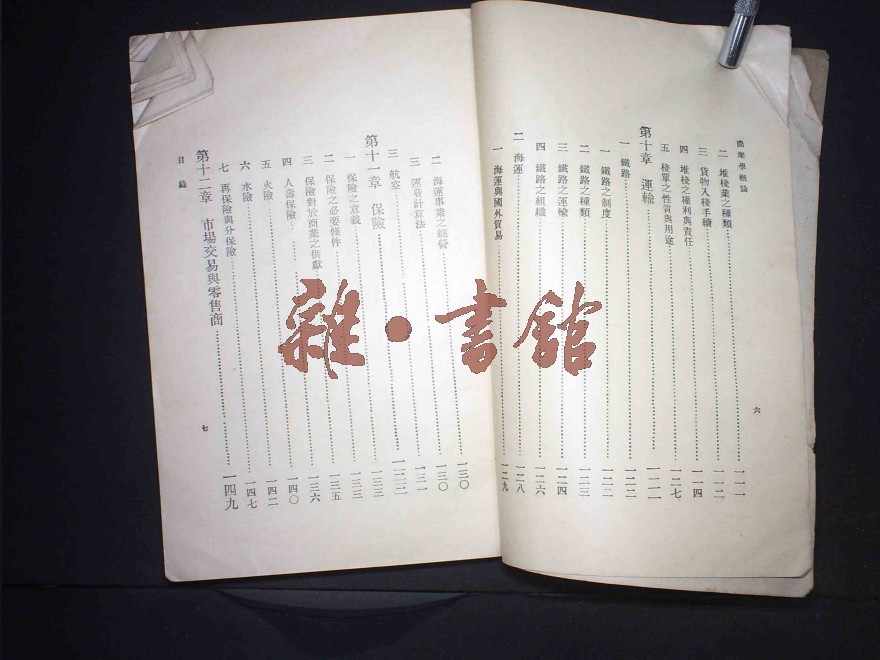 商業學概論
二 堆棧業之種類……一一一
三 貨物入棧手續……一一二
四 堆棧之權利與責任……一一四
五 棧單之性質與用途
第十章 運輸
一 鐵路……一二二
一 鐵路之制度
二 鐵路之種類……一二三
三 鐵路之運輸……一二四
四 鐵路之組織……一二六
二 海運……一二八
一 海運與國外貿易……一二九
六
二 海運事業之經營……一三〇
三 運費計算法……一三一
三 航空
第十一章 保險……一三三
一 保險之意義……一三三
二 保險之必要條件……一三五
三 保險對於商業之供獻……一三六
四 人壽保險……一四〇
五 火險……一四二
六 水險……一四七
七 再保險與分保險
第十二章 市場交易與零售商……一四九
目錄
七
雜·書館